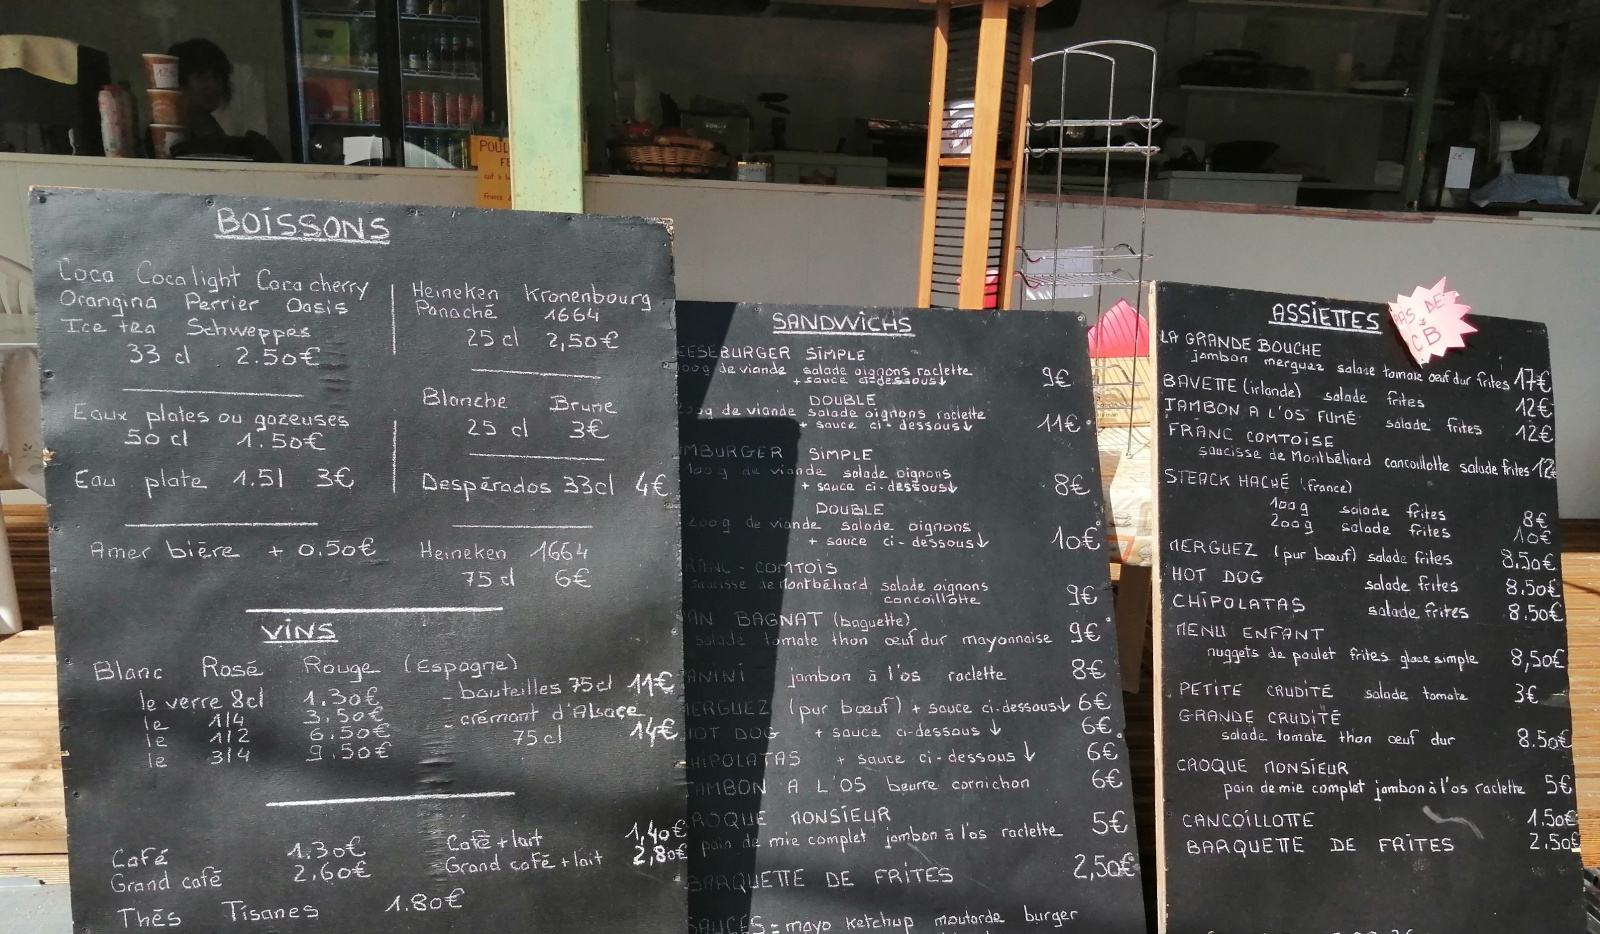 BOISSONS
Coca Coca light Coca cherry
Orangina Perrier Oasis
Ice tea Schweppes
33 cl 2.50€
Eaux plates ou gazeuses
50 cl 1.50€
Eau plate 1.5l 3€
Amer bière + 0.50€
Heineken Kronenbourg
Panaché 1664
25 cl 2,50€
Blanche Brune
25 cl 3€
Despérados 33cl 4€
Heineken 1664
75 cl 6€
VINS
Blanc Rosé Rouge (Espagne)
le verre 8cl 1.30€
le 1/4 3.50€
le 1/2 6.50€
le 3/4 9.50€
- bouteilles 75cl 11€
- crémant d'Alsace
75 cl 14€
Café 1.30€
Grand café 2.60€
Thés Tisanes 1.80€
Café + lait 1,40€
Grand café + lait 2,80€
SANDWICHS
EESEBURGER SIMPLE
100g de viande salade oignons raclette
+ sauce ci-dessous↓ 9€
DOUBLE
200g de viande salade oignons raclette
+ sauce ci-dessous↓ 11€
MBURGER SIMPLE
100g de viande salade oignons
+ sauce ci-dessous↓ 8€
DOUBLE
200g de viande salade oignons
+ sauce ci-dessous↓ 10€
RANC-COMTOIS
saucisse de Montbéliard salade oignons
cancoillotte 9€
AN BAGNAT (baguette)
salade tomate thon œuf dur mayonnaise 9€
ANINI jambon à l'os raclette 8€
MERGUEZ (pur bœuf) + sauce ci-dessous↓ 6€
HOT DOG + sauce ci-dessous ↓ 6€
HIPOLATAS + sauce ci-dessous ↓ 6€
JAMBON A L'OS beurre cornichon 6€
ROQUE MONSIEUR
pain de mie complet jambon à l'os raclette 5€
BARQUETTE DE FRITES 2,50€
SAUCES = mayo ketchup moutarde burger
ASSIETTES
PAS DE
CB
LA GRANDE BOUCHE
jambon merguez salade tomate œuf dur frites 17€
BAVETTE (irlande) salade frites 12€
JAMBON A L'OS FUMÉ salade frites 12€
FRANC COMTOISE
saucisse de Montbéliard cancoillotte salade frites 12€
STEACK HACHÉ (france)
100g salade frites 8€
200g salade frites 10€
MERGUEZ (pur bœuf) salade frites 8.50€
HOT DOG salade frites 8.50€
CHIPOLATAS salade frites 8.50€
MENU ENFANT
nuggets de poulet frites glace simple 8,50€
PETITE CRUDITÉ salade tomate 3€
GRANDE CRUDITÉ
salade tomate thon œuf dur 8.50€
CROQUE MONSIEUR
pain de mie complet jambon à l'os raclette 5€
CANCOILLOTTE 1.50€
BARQUETTE DE FRITES 2.50€